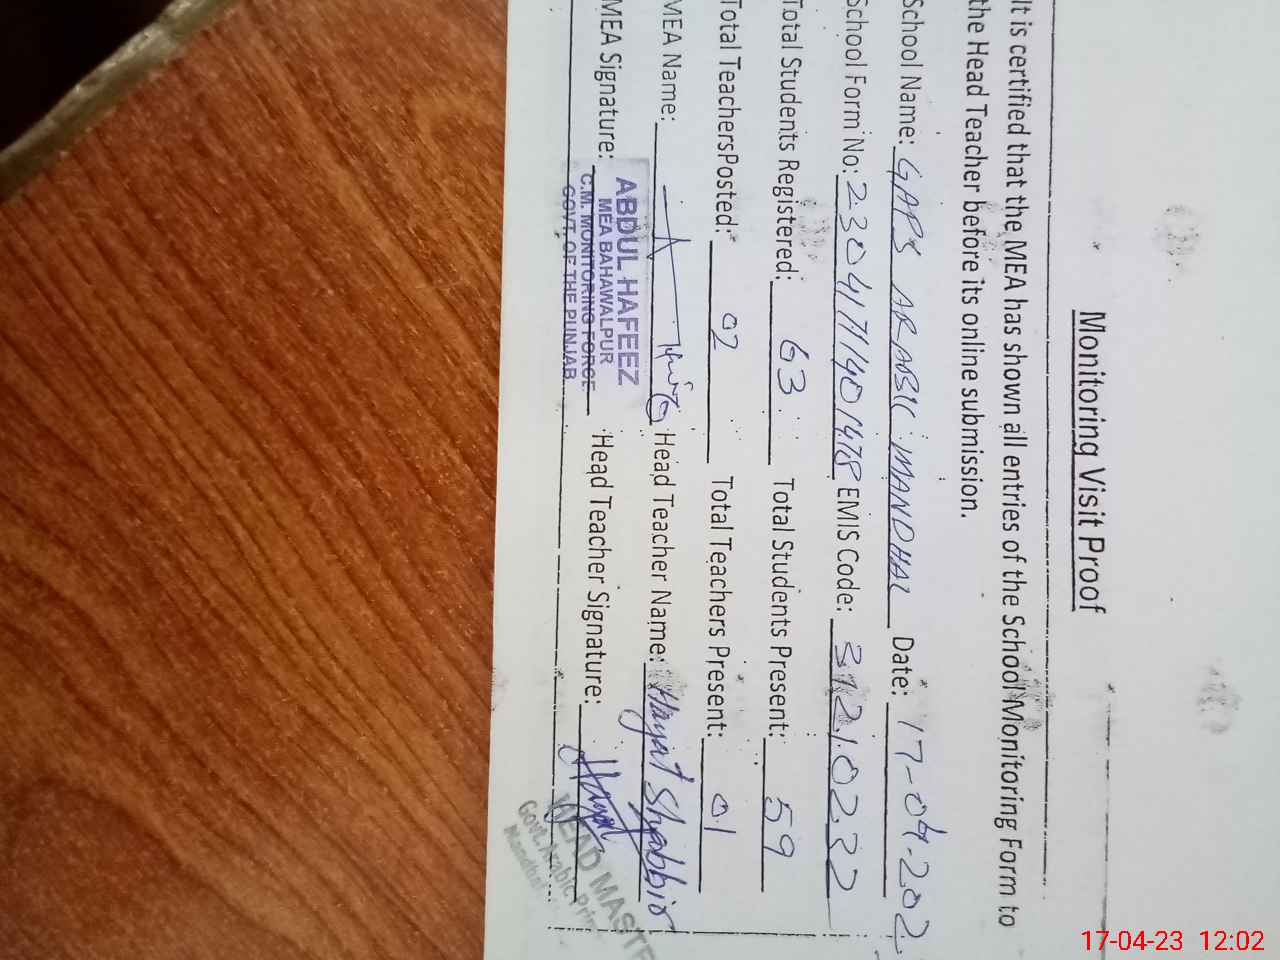 Monitoring Visit Proof
It is certified that the MEA has shown all entries of the School Monitoring Form to
the Head Teacher before its online submission.
School Name: GAPS ARABIC MANDHAL Date: 17-04-202
School Form No: 2304171401478 EMIS Code: 31210232
Total Students Registered: 63 Total Students Present: 59
Total TeachersPosted: 02 Total Teachers Present: 01
MEA Name: Head Teacher Name: Hayat Shabbir
MEA Signature: Head Teacher Signature: Hayat
ABDUL HAFEEZ
MEA BAHAWALPUR
C.M. MONITORING FORCE
GOVT. OF THE PUNJAB
HEAD MASTE
Govt. Arabic Prim
Mandhal
17-04-23 12:02